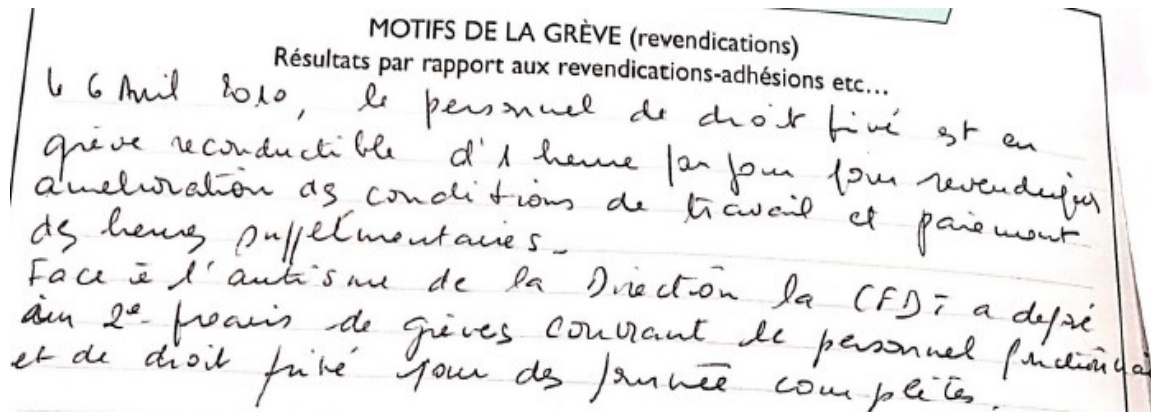 MOTIFS DE LA GRÈVE (revendications)
Résultats par rapport aux revendications-adhésions etc...
Le 6 Avril 2010, le personnel de droit privé est en
grève reconductible d'1 heure par jour pour revendiquer
amelioration des conditions de travail et paiement
des heures supplémentaires.
Face à l'autisme de la Direction la CFDT a déposé
un 2e préavis de grèves couvrant le personnel
et de droit privé pour des journée complètes.